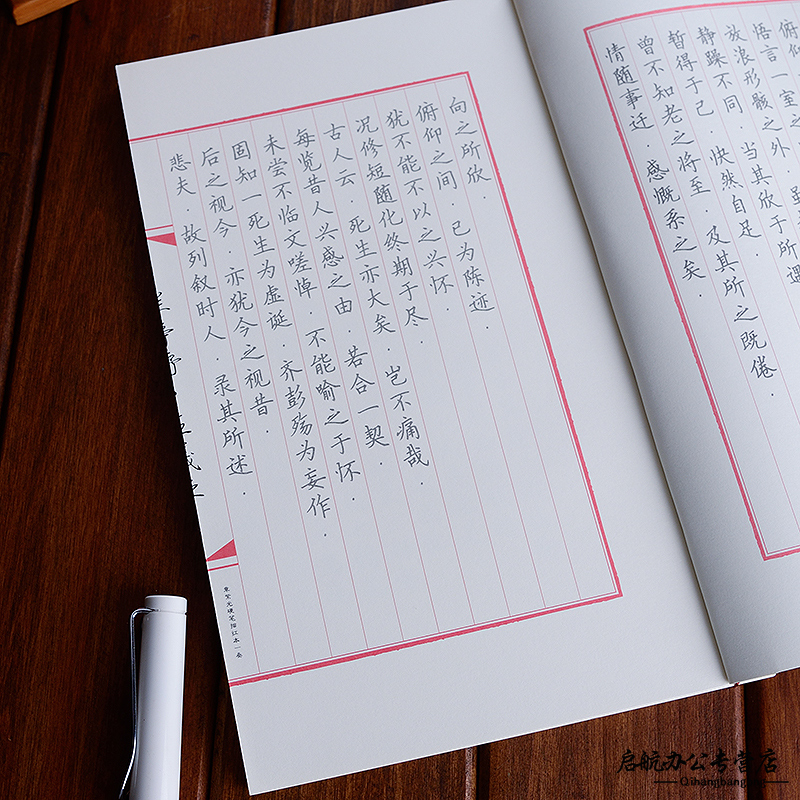 俯仰
悟言一室之
放浪形骸之外.虽
静躁不同.当其欣于所遇
暂得于己.快然自足.
曾不知老之将至.及其所之既倦.
情随事迁.感慨系之矣.
向之所欣.
俯仰之间.已为陈迹.
犹不能不以之兴怀.
况修短随化终期于尽.
古人云.死生亦大矣.岂不痛哉.
每览昔人兴感之由.若合一契.
未尝不临文嗟悼.不能喻之于怀.
固知一死生为虚诞.齐彭殇为妄作.
后之视今.亦犹今之视昔.
悲夫.故列叙时人.录其所述.
启航办公专营店
Qihangbang